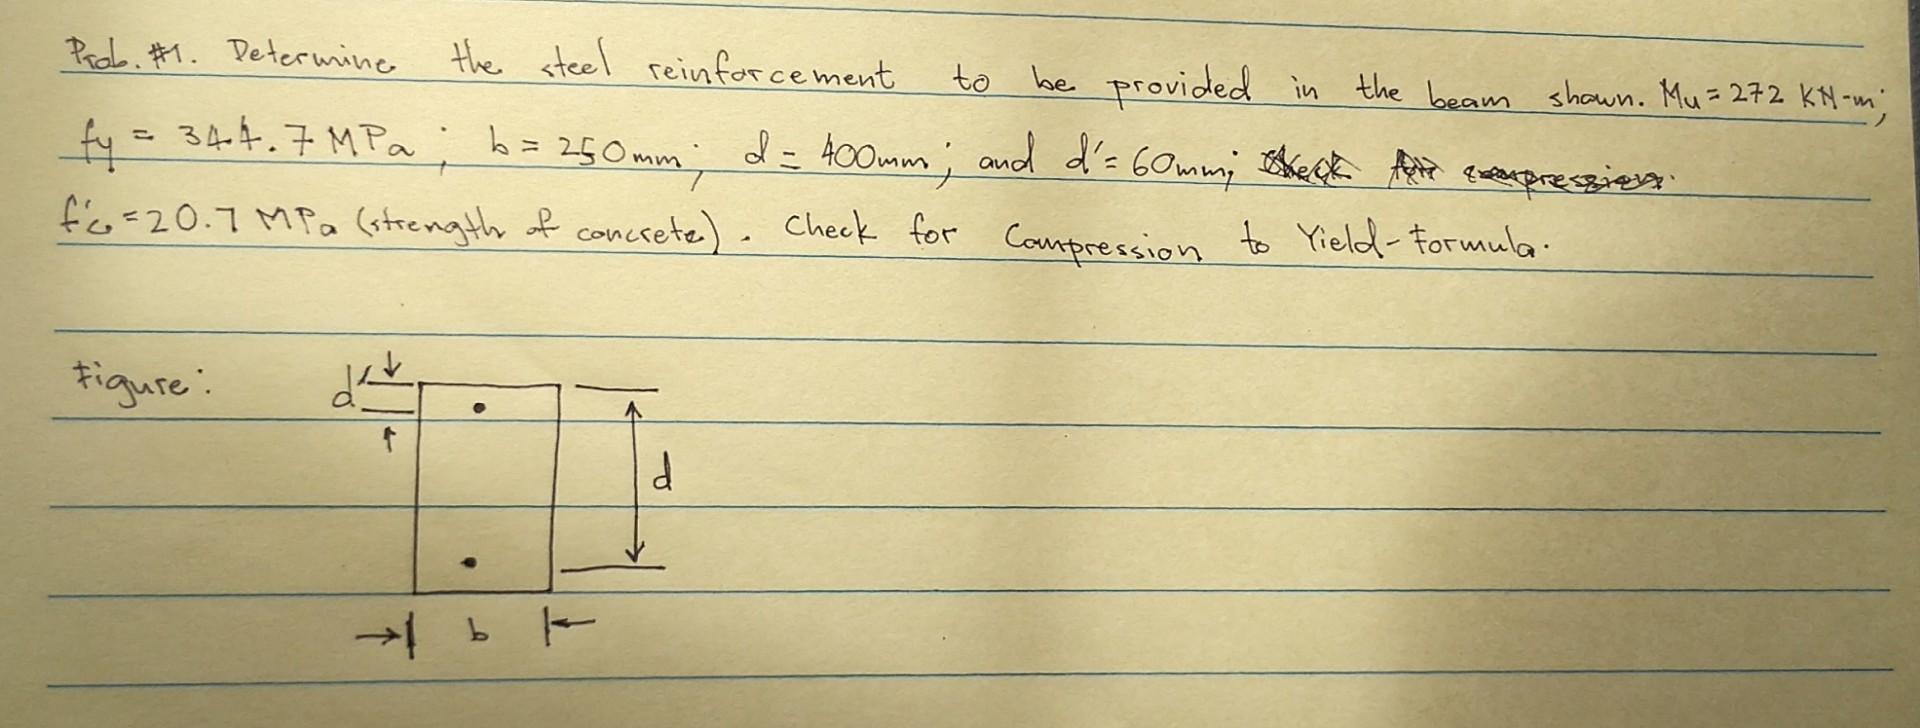 Prob. #1. Determine the steel reinforcement to be provided in the beam shown. Mu = 272 KN-m;
fy = 344.7 MPa; b = 250mm; d = 400mm; and d' = 60mm;
f'c = 20.7 MPa (strength of concrete). Check for Compression to Yield-Formula.
Figure:
d'
d
b